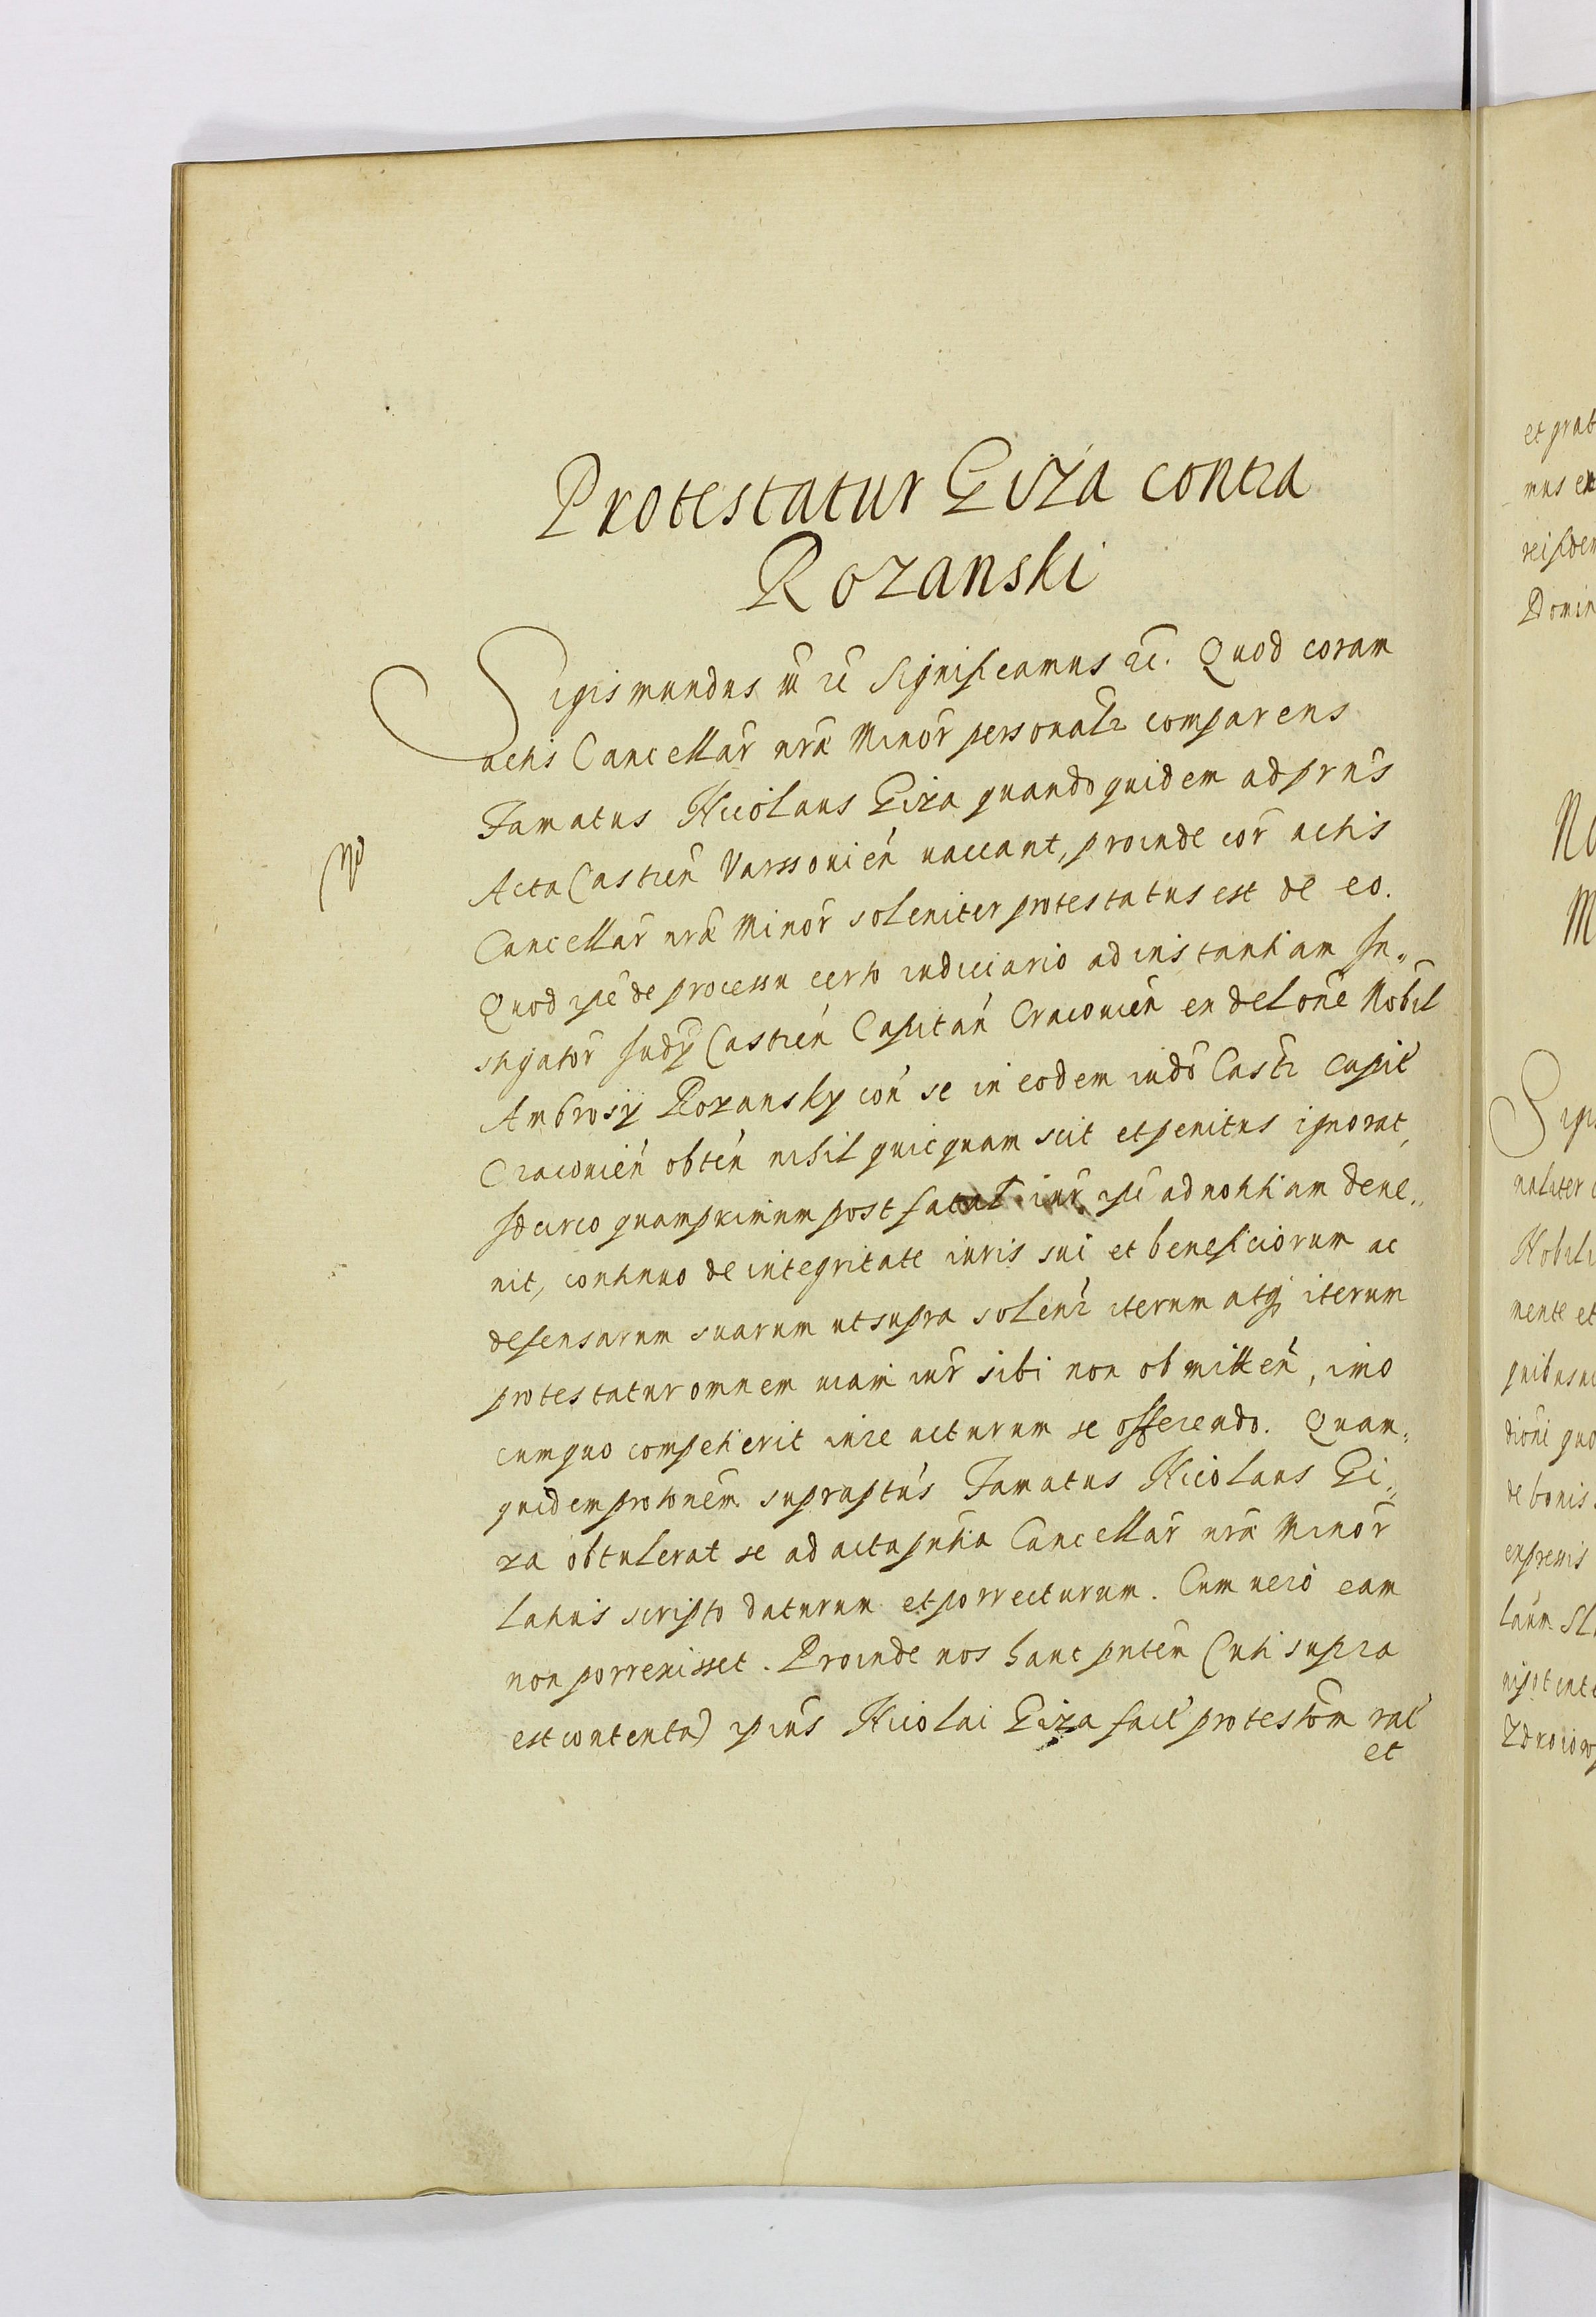 Protestatur Giza contra
Rozanski
Sigismundus III etc Significamus etc. Quod coram
actis Cancellar nrae Minor personalr comparens
Famatus Nicolaus Giza quandoquidem ad prns
Acta Castren Varssovien vaccant, proinde cor actis
Cancellar nrae Minor soleniter protestatus est de eo.
Quod ipse de processu certo iudiciario ad instantiam In„
stigator Iudy Castren Capitan Cracovien ex delone Nobil
Ambrosy Rozansky con se in eodem indo Castr Capit
Cracovien obten nihil quicquam scit et penitus ignorat,
Idcirco quamprimum post iur ipse ad notitiam deve„
nit, continuo de integritate iuris sui et beneficiorum ac
defensarum suarum ut supra solenr iterum atq iterum
protestatur omnem viam iur sibi non obmitten, imo
cum quo competierit iure acturum se offerendo. Quam„
quidem protonem supraptus Famatus Nicolaus Gi„
za obtulerat se ad acta pntia Cancellar nrae Minor
latius scripto daturum et porrecturum. Cum vero eam
non porrexisset. Proinde nos hanc pnten (uti supra
est contenta) ipius Nicolai Giza fact protestom rat
et
et grat
mus ex
reisdem
Domin
No
M
Sigi
naliter
Nobili
mente et
quibusvi
dioni quo
de bonis
expressis
laum Sl
Zdroiow